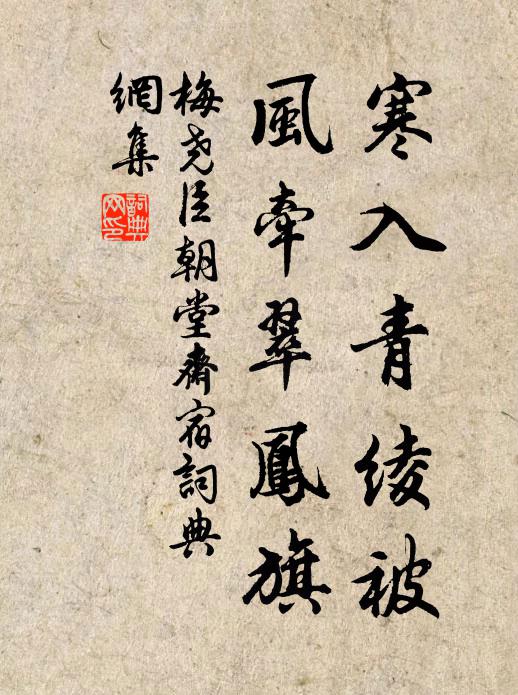 寒入青綾被
風牽翠鳳旗
梅堯臣朝堂齋宿詞典
網集
詞典
网印